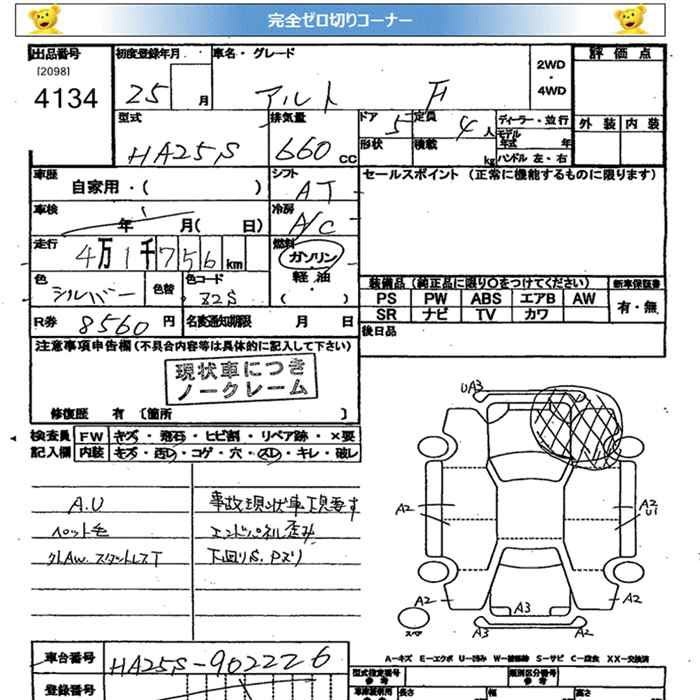 完全ゼロ切りコーナー
出品番号 初度登録年月 車名・グレード 2WD・4WD 評価点
[2098]
4134 25 月 アルト F
型式 排気量 ドア 5 定員 4人 ディーラー・並行 外装 内装
HA25S 660cc 形状 積載 kg モデル年式 年
ハンドル 左・右
車歴 シフト セールスポイント (正常に機能するものに限ります)
自家用・( ) AT
車検 冷房
年 月( 日) A/C
走行 燃料
4万1千756km ガソリン
色 色替 色コード 軽油 装備品 (純正品に限り○をつけてください) 新車保証書
シルバー Z2S ( ) PS PW ABS エアB AW 有・無
SR ナビ TV カワ
R券 8560円 名変通知期限 月 日 後日品
注意事項申告欄 (不具合内容等は具体的に記入して下さい)
現状車につき
ノークレーム
修復歴 有 [箇所 ]
UA3
検査員 FW キズ・飛石・ヒビ割・リペア跡・×要
記入欄 内装 キズ・凹レ・コゲ・穴・スレ・キレ・破レ
A.U 事故現状車 現要す
ペット毛 エンドパネル歪み
下回りS.Pズリ
A2 A2
U1
A2 A3 A2
スペア A3 A2
A－キズ E－エクボ U－凹み W－補修跡 S－サビ C－腐食 XX－交換済
車台番号 HA25S-902226
登録番号
型式指定番号 参考 類別区分番号 参考
長さ 幅 高さ